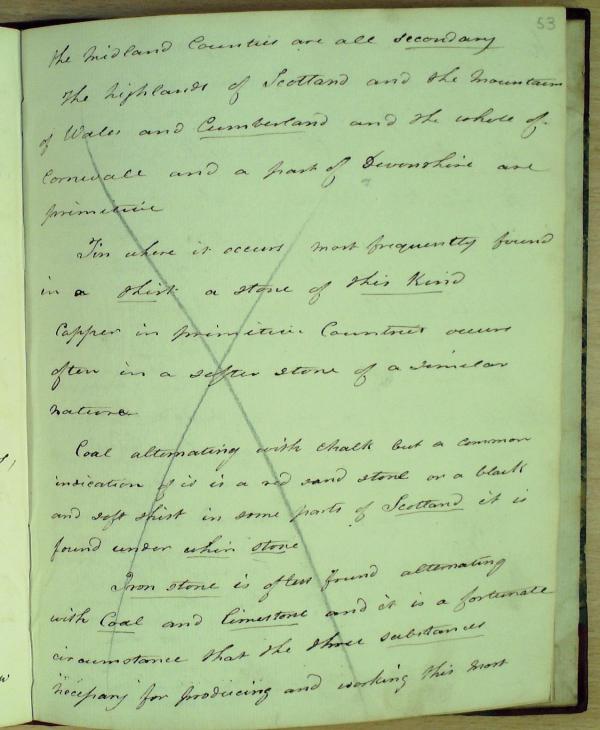 53
the Midland Counties are all secondary
The highlands of Scotland and the Mountains
of Wales and Cumberland and the whole of
Cornwall and a part of Devonshire are
primitive
Tin where it occurs most frequently found
in a shist a stone of this Kind
Copper in primitive Countries occurs
often in a softer stone of a similar
nature
Coal alternating with chalk but a common
indication of it is a red sand stone or a black
and soft shist in some parts of Scotland it is
found under whin stone
Iron stone is often found alternating
with Coal and limestone and it is a fortunate
circumstance that the three substances
necessary for producing and working this most